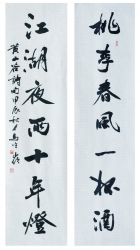 桃李春風一杯酒
江湖夜雨十年燈
黄山谷詩句甲辰秋月